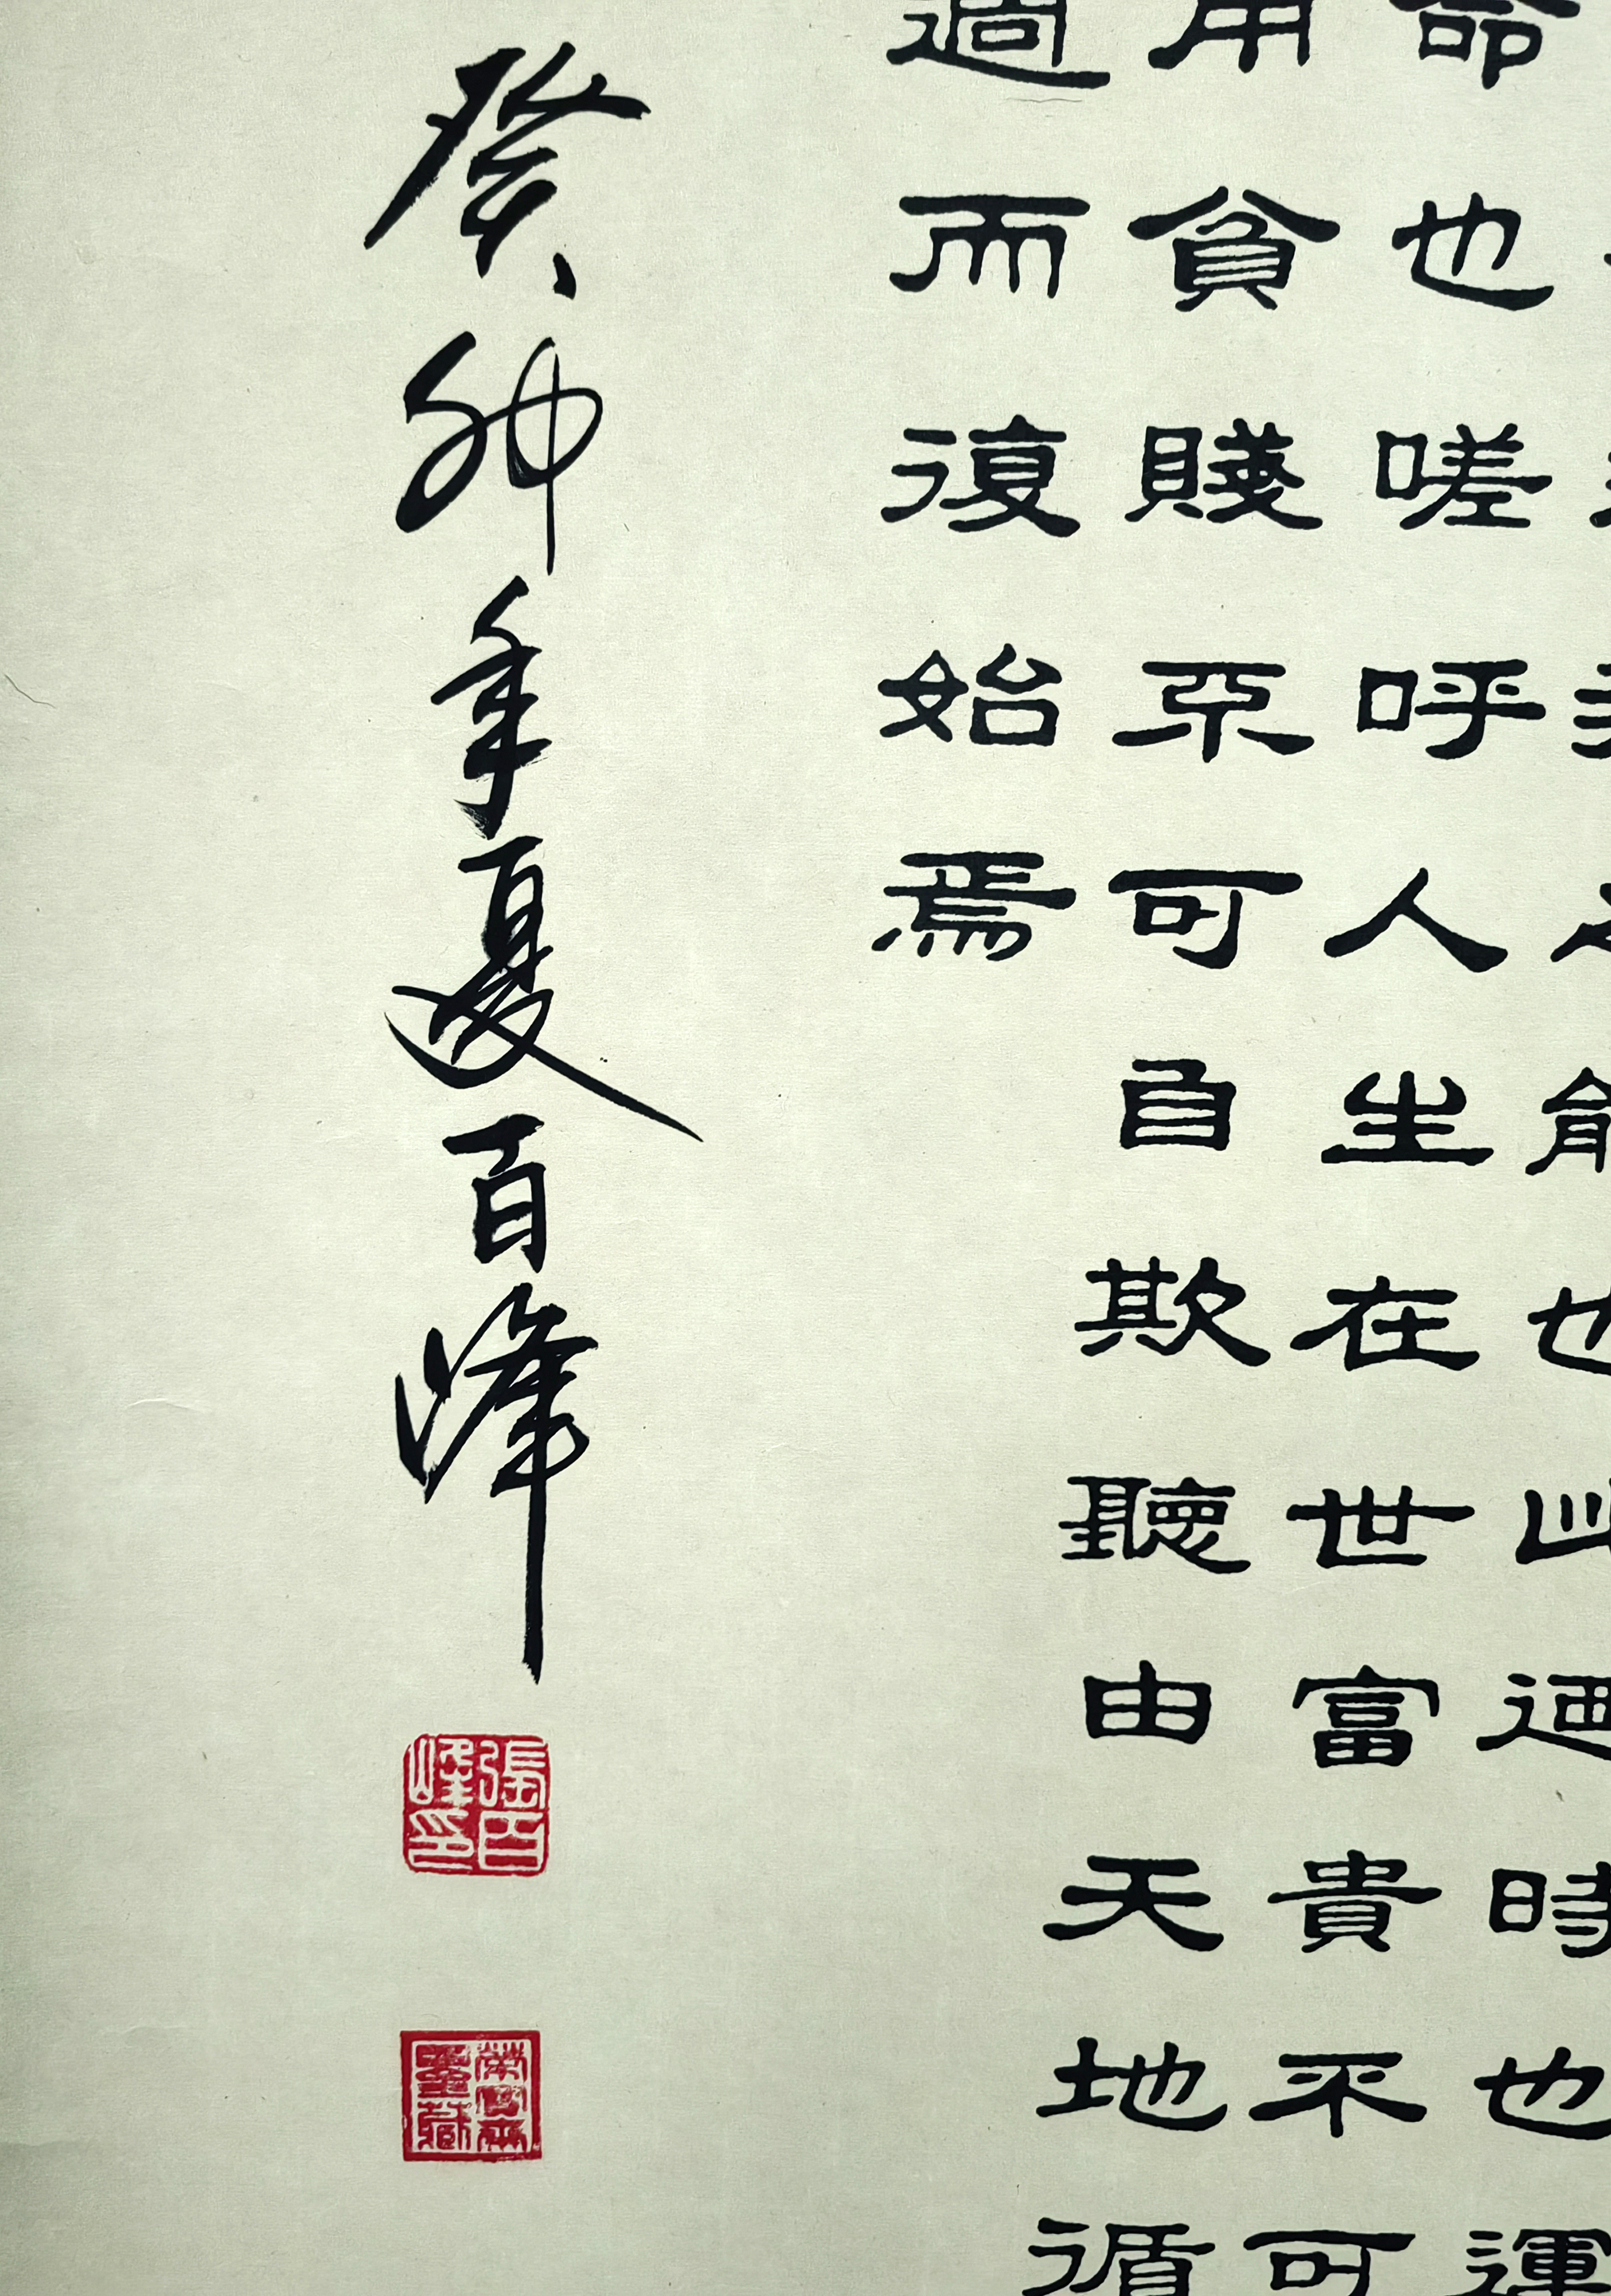 能也此迺時也運
命也嗟呼人生在世富貴不可
用貧賤不可自欺聽由天地循
週而復始焉
癸卯年夏百峰
張百峰印